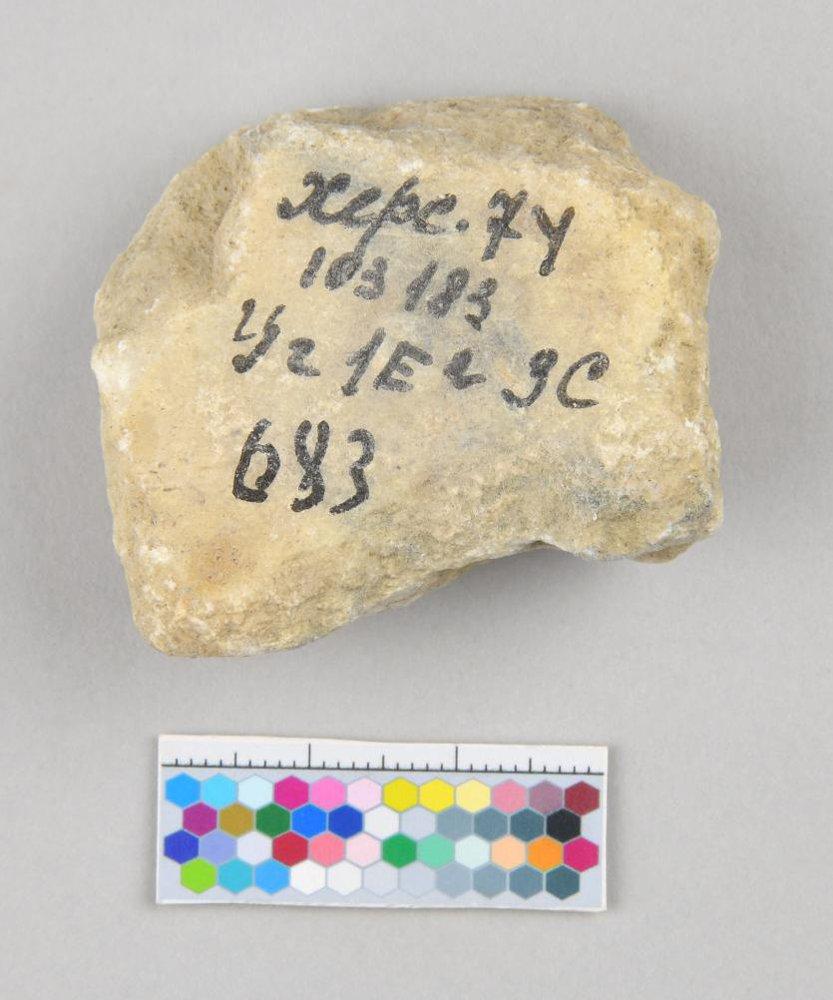 Херс. 74
103183
1Е 2 9С
683